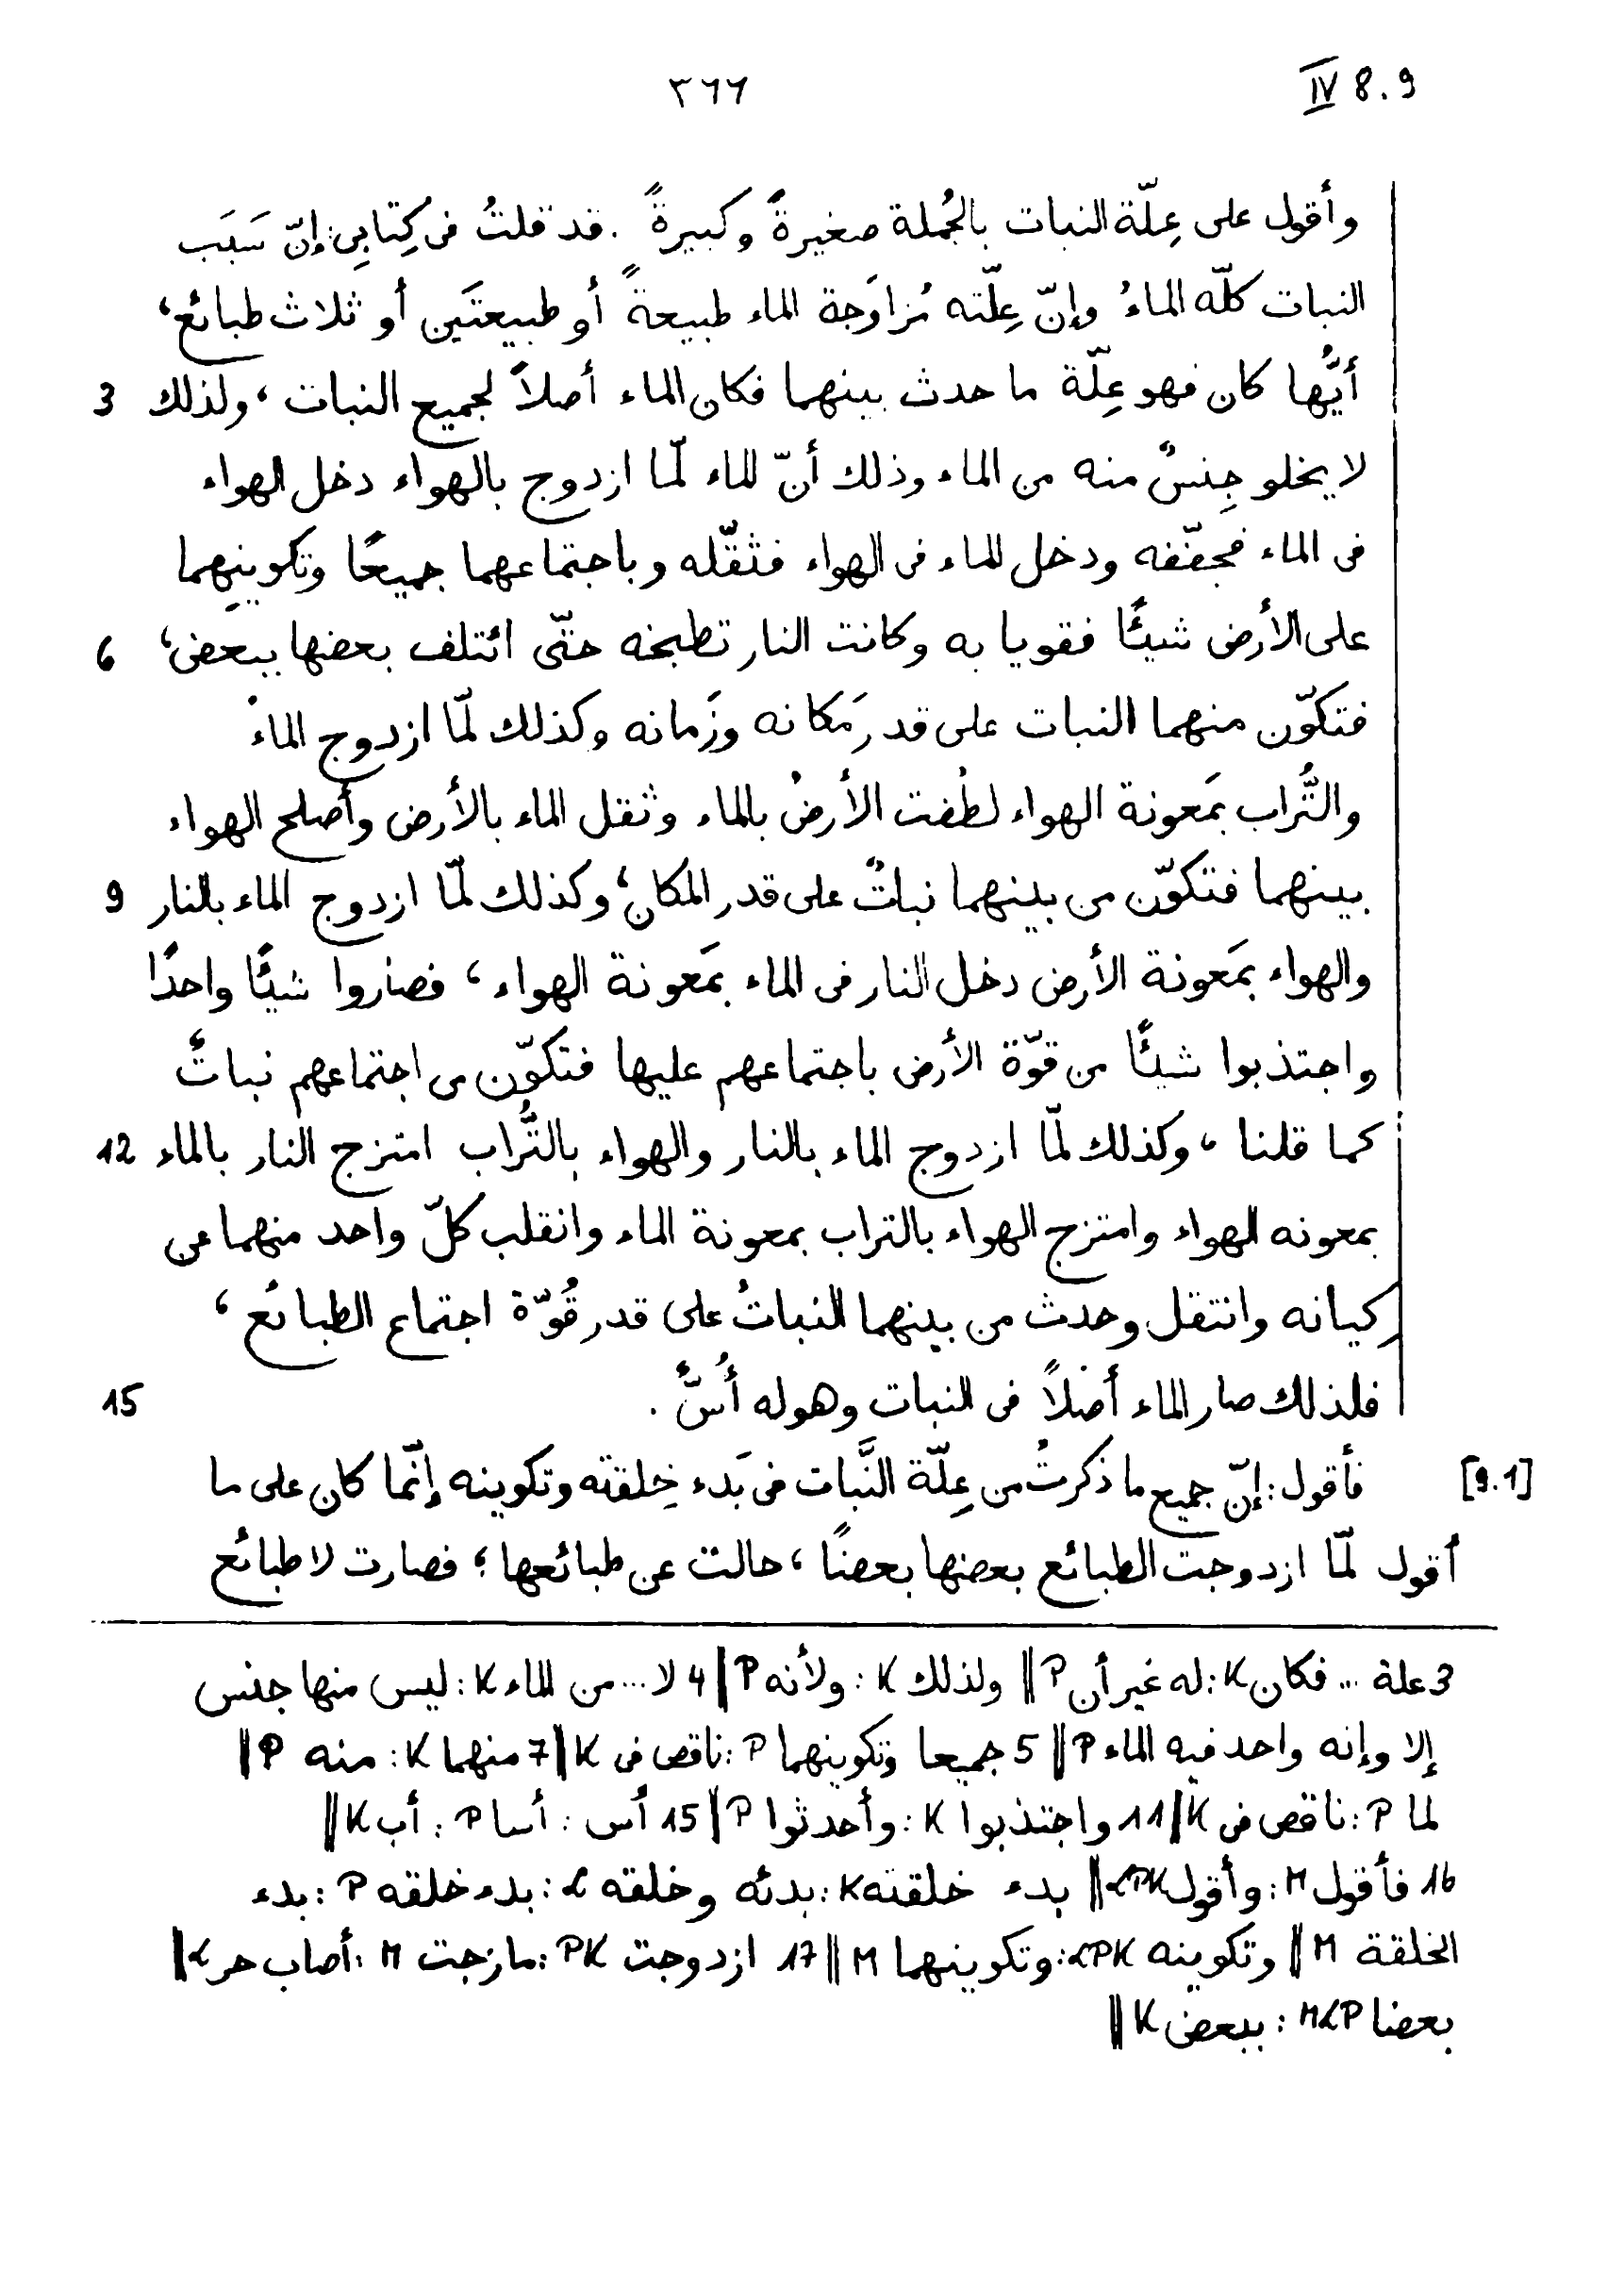 IV 8.9
٣٦٦
وأقول على عِلّة النبات بالجُملة صغيرةً وكبيرةً . قد قلتُ فى كِتابِى : إنّ سَبَب
النبات كلّه الماءُ وإنّ عِلّته مُزاوَجة الماء طبيعةً أو طبيعتَين أو ثلاث طبائع،
3 أيُّها كان فهو عِلّة ما حدث بينهما فكان الماء أصلاً لجميع النبات ، ولذلك
لا يخلو جِنسٌ منه من الماء وذلك أنّ الماء لمّا ازدوج بالهواء دخل الهواء
فى الماء فجفّفه ودخل الماء فى الهواء فثقّله وباجتماعهما جميعًا وتكوينِهما
6 على الأرض شيئًا فقويا به وكانت النار تطبخه حتّى ائتلف بعضها ببعض،
فتكوّن منهما النبات على قدر مَكانه وزَمانه وكذلك لمّا ازدوج الماءُ
والتُّراب بمَعونة الهواء لطُفت الأرضُ بالماء وثقل الماء بالأرض وأصلح الهواء
9 بينهما فتكوّن من بينهما نباتٌ على قدر المكان؛ وكذلك لمّا ازدوج الماء بالنار
والهواء بمَعونة الأرض دخل النار فى الماء بمَعونة الهواء ، فصاروا شيئًا واحدًا
واجتذبوا شيئًا من قوّة الأرض باجتماعهم عليها فتكوّن من اجتماعهم نباتٌ
12 كما قلنا ، وكذلك لمّا ازدوج الماء بالنار والهواء بالتُّراب امتزج النار بالماء
بمعونه الهواء وامتزج الهواء بالتراب بمعونة الماء وانقلب كلّ واحد منهما عن
كيانه وانتقل وحدث من بينهما النباتُ على قدر قُوّة اجتماع الطبائع ،
15 فلذلك صار الماء أصلاً فى النبات وهو له أُسٌّ .
[9.1] فأقول : إنّ جميع ما ذكرتُ من عِلّة النَّبات فى بَدء خِلقته وتكوينه إنّما كان على ما
أقول لمّا ازدوجت الطبائع بعضها بعضًا ، حالت عن طبائعها ؛ فصارت لا طبائع
3 علة ... فكان K : له غير أن P || ولذلك K : ولأنه P || 4 لا ... من الماء K : ليس منها جنس
إلا وإنه واحد فيه الماء P || 5 جميعا وتكوينهما P : ناقص فى K || 7 منهما K : منه P ||
لما P : ناقص فى K || 11 واجتذبوا K : وأحدثوا P || 15 أس : أسا P : أب K ||
16 فأقول M : وأقول LPK || بدء خلقته K : بدئه وخلقه L : بدء خلقه P : بدء
الخلقة M || وتكوينه LPK : وتكوينهما M || 17 ازدوجت PK : مازجت M : أصاب حر L ||
بعضا MLP : ببعض K ||